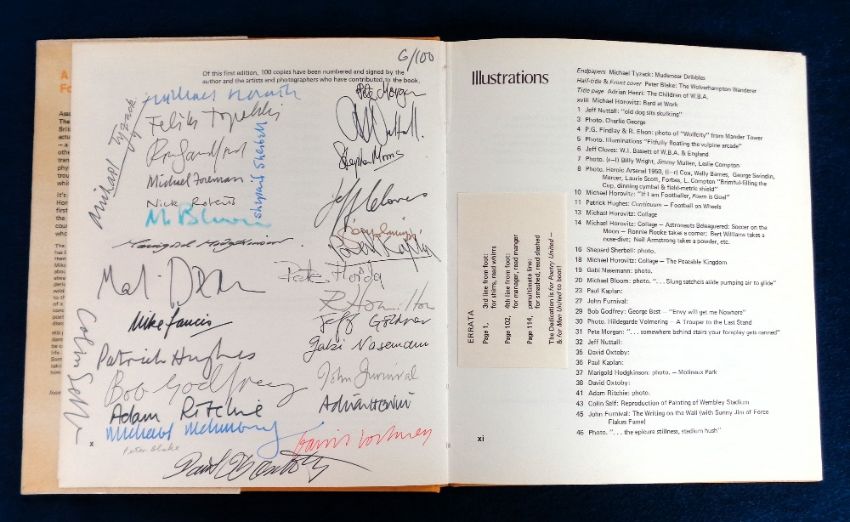 6/100
Of this first edition, 100 copies have been numbered and signed by the
author and the artists and photographers who have contributed to the book.
Michael Horovitz
Feliks Topolski
Michael Tyzack
Michael Foreman
Shepard Sherbell
Nick Roberts
Marigold Hodgkinson
Mal Dean
Patrick Hughes
Bob Godfrey
Adam Ritchie
Peter Blake
Pete Morgan
J Nuttall
Stephen Morris
Jeff Cloves
Jeff Goldner
Gabi Nasemann
John Furnival
Adrian Henri
Colin Self
x
Illustrations
Endpapers Michael Tyzack: Mudsnear Dribbles
Half-title & Front cover Peter Blake: The Wolverhampton Wanderer
Title page Adrian Henri: The Children of W.B.A.
xviii Michael Horovitz: Bard at Work
1 Jeff Nuttall: "old dog sits skulking"
3 Photo. Charlie George
4 P.G. Findlay & R. Elson: photo of "Wolfcity" from Mander Tower
5 Photo. Illuminations "Fitfully floating the vulpine arcade"
6 Jeff Cloves: W.I. Bassett of W.B.A. & England
7 Photo. (l–r) Billy Wright, Jimmy Mullen, Leslie Compton
8 Photo. Heroic Arsenal 1950, (l–r) Cox, Wally Barnes, George Swindin,
Mercer, Laurie Scott, Forbes, L. Compton "Brimful-filling the
Cup, dinning cymbal & field-metric shield"
10 Michael Horovitz: "If I am Footballer, Poem is Goal"
11 Patrick Hughes: Continuum – Football on Wheels
13 Michael Horovitz: Collage
14 Michael Horovitz: Collage – Astronauts Besaguered: Soccer on the
Moon – Ronnie Rooke takes a corner: Bert Williams takes a
nose-dive; Neil Armstrong takes a powder, etc.
16 Shepard Sherbell: photo.
18 Michael Horovitz: Collage – The Peaceable Kingdom
19 Gabi Nasemann: photo.
20 Michael Bloom: photo. ". . . Slung satchels alike pumping air to glide"
23 Paul Kaplan:
27 John Furnival:
29 Bob Godfrey: George Best – "Envy will get me Nowhere"
30 Photo. Hildegarde Volmering – A Trouper to the Last Stand
31 Pete Morgan: ". . . somewhere behind stairs your foreplay gets ranned"
32 Jeff Nuttall:
35 David Oxtoby:
36 Paul Kaplan:
37 Marigold Hodgkinson: photo. – Molineux Park
38 David Oxtoby:
41 Adam Ritchie: photo.
43 Colin Self: Reproduction of Painting of Wembley Stadium
45 John Furnival: The Writing on the Wall (with Sunny Jim of Force
Flakes Fame)
46 Photo. ". . . the epicure stillness, stadium hush"
xi
ERRATA
Page 1, 3rd line from foot:
for shirts, read whirrs
Page 102, 4th line from foot:
for manager, read manger
Page 114, penultimate line:
for smashed, read slashed
The Dedication is for Poetry United –
& for Man United to boot!